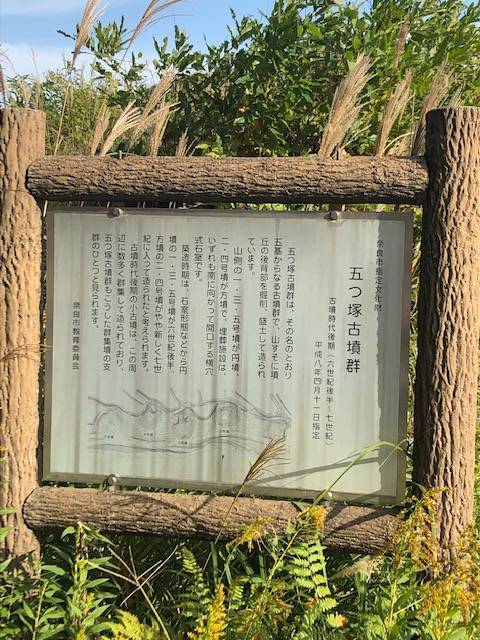 奈良市指定文化財
五つ塚古墳群
古墳時代後期(六世紀後半~七世紀)
平成八年四月十一日指定
五つ塚古墳群は、その名のとおり
五基からなる古墳群で、山すそに墳
丘の後背部を掘削、盛土して造られ
ています。
山側の一・三・五号墳が円墳、
二・四号墳が方墳で、埋葬施設は、
いずれも南に向かって開口する横穴
式石室です。
築造時期は、石室形態などから円
墳の一・三・五号墳が六世紀後半、
方墳の二・四号墳がやや新しく七世
紀に入って造られたと考えられます。
古墳時代後期の小古墳は、この周
辺に数多く群集して造られており、
五つ塚古墳群もこうした群集墳の支
群のひとつと見られます。
奈良市教育委員会